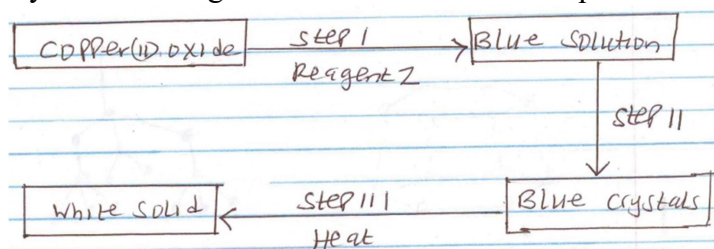 Copper(II) oxide
Step I
Reagent Z
Blue solution
Step II
Blue crystals
Step III
Heat
White solid